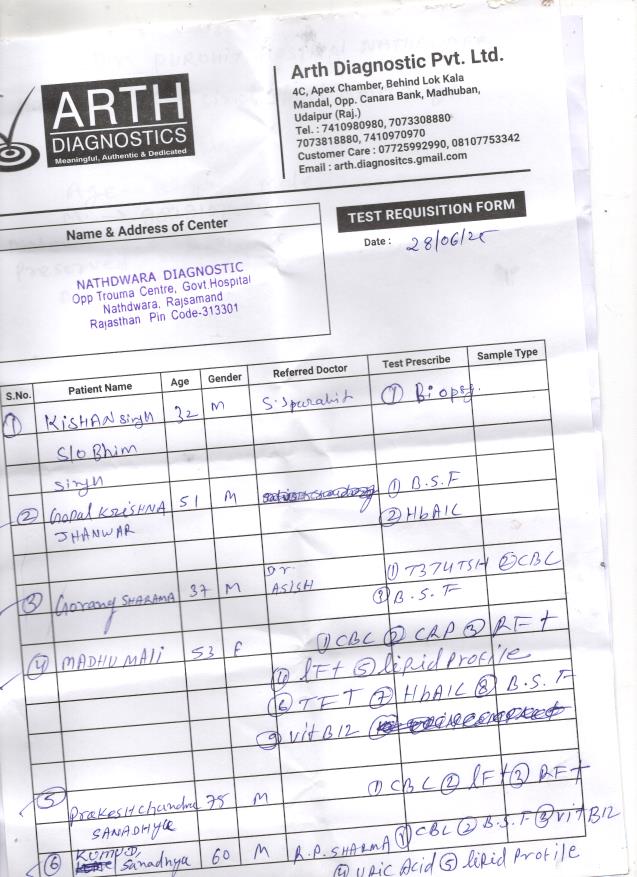 ARTH
DIAGNOSTICS
Meaningful, Authentic & Dedicated
Arth Diagnostic Pvt. Ltd.
4C, Apex Chamber, Behind Lok Kala
Mandal, Opp. Canara Bank, Madhuban,
Udaipur (Raj.)
Tel. : 7410980980, 7073308880
7073818880, 7410970970
Customer Care : 07725992990, 08107753342
Email : arth.diagnositcs.gmail.com
Name & Address of Center
NATHDWARA DIAGNOSTIC
Opp Trouma Centre, Govt.Hospital
Nathdwara, Rajsamand
Rajasthan Pin Code-313301
TEST REQUISITION FORM
Date : 28/06/25
S.No. Patient Name Age Gender Referred Doctor Test Prescribe Sample Type
① KISHAN Singh 32 M S.Spurohit ① Biopsy.
S/o Bhim
Singh
② Gopal KRISHNA 51 M ① B.S.F
JHANWAR ② HbA1C
③ Gorang SHARAMA 37 M Dr. ASISH ① T3T4TSH ② CBC
③ B.S.F
④ MADHU MALI 53 F ① CBC ② CRP ③ RFT
④ LFT ⑤ lipid Profile
⑥ TFT ⑦ HbA1C ⑧ B.S.F
⑨ Vit B12
⑤ Prakesh Chandra 75 M ① CBC ② LFT ③ RFT
SANADHYA
⑥ KUMUD, Sanadhya 60 M R.P. SHARMA ① CBC ② B.S.F ③ Vit B12
④ URIC Acid ⑤ lipid Profile